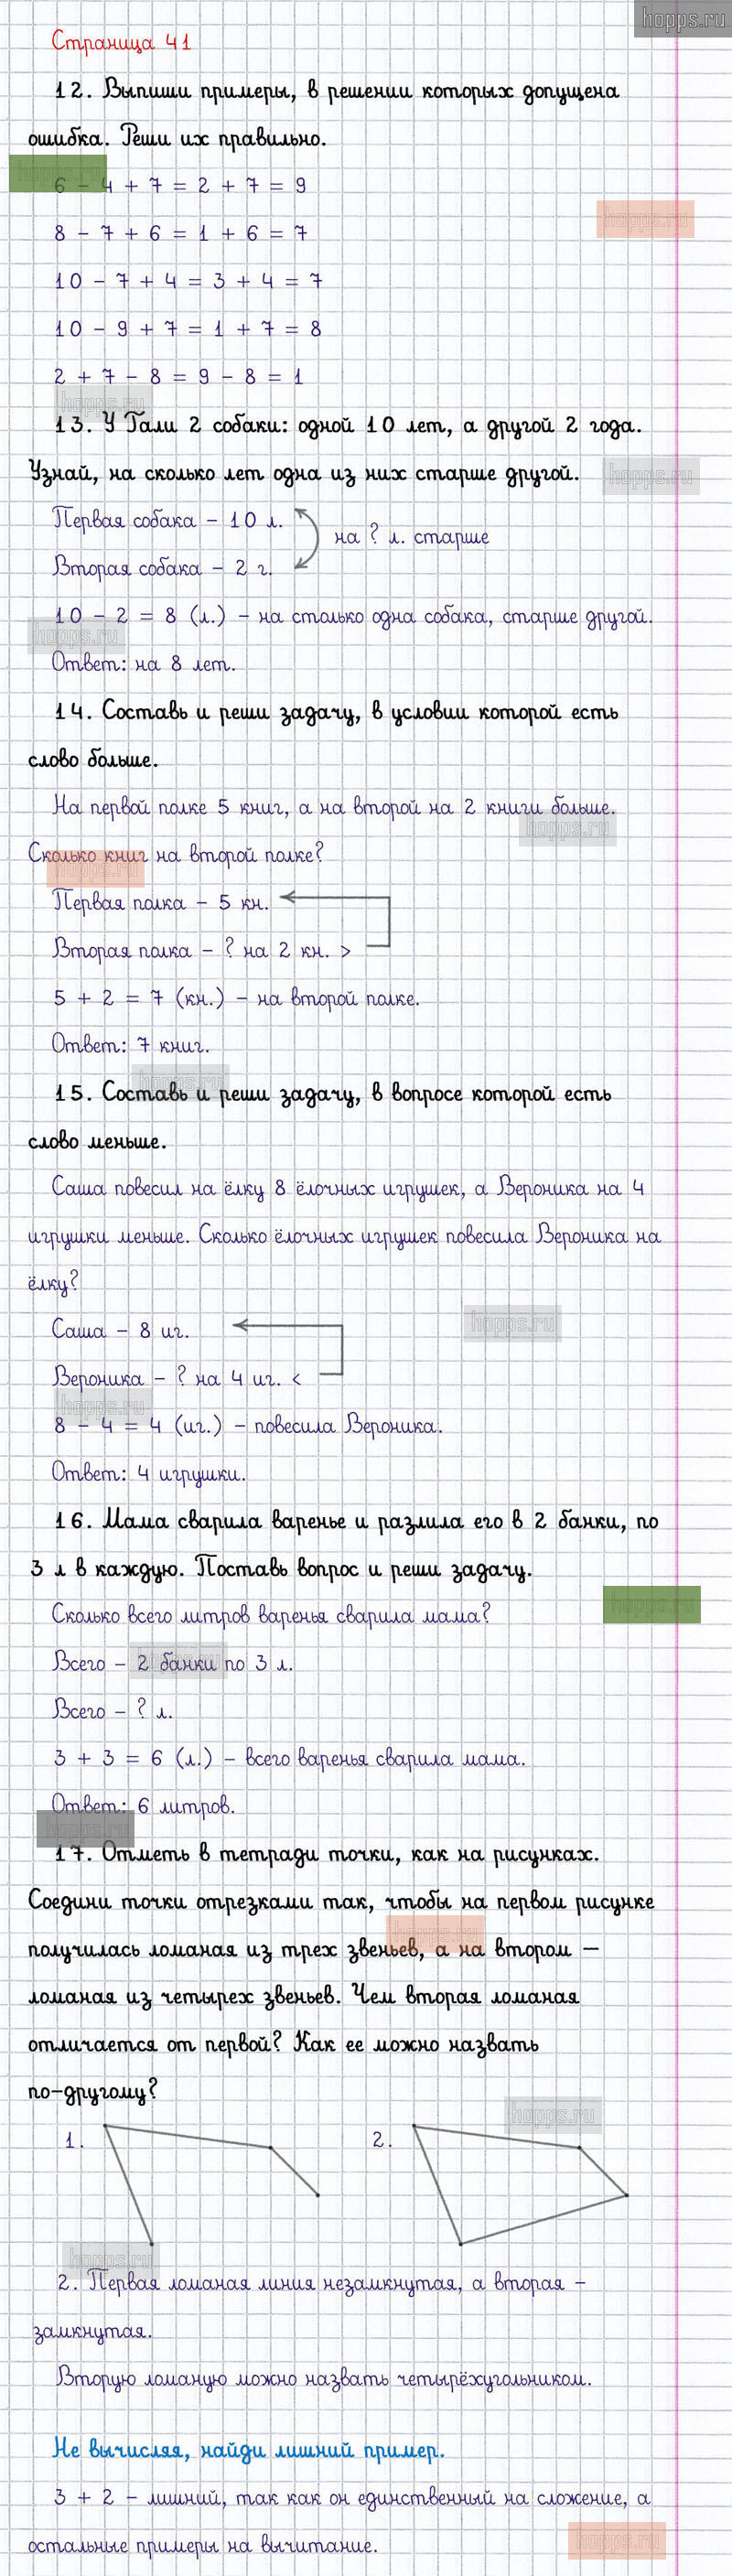 hopps.ru
Страница 41
12. Выпиши примеры, в решении которых допущена
ошибка. Реши их правильно.
hopps.ru
6 - 4 + 7 = 2 + 7 = 9
hopps.ru
8 - 7 + 6 = 1 + 6 = 7
10 - 7 + 4 = 3 + 4 = 7
10 - 9 + 7 = 1 + 7 = 8
2 + 7 - 8 = 9 - 8 = 1
hopps.ru
13. У Гали 2 собаки: одной 10 лет, а другой 2 года.
Узнай, на сколько лет одна из них старше другой.
hopps.ru
Первая собака – 10 л.
на ? л. старше
Вторая собака – 2 г.
10 - 2 = 8 (л.) – на столько одна собака, старше другой.
hopps.ru
Ответ: на 8 лет.
14. Составь и реши задачу, в условии которой есть
слово больше.
На первой полке 5 книг, а на второй на 2 книги больше.
hopps.ru
Сколько книг на второй полке?
hopps.ru
Первая полка – 5 кн.
Вторая полка – ? на 2 кн. >
5 + 2 = 7 (кн.) – на второй полке.
Ответ: 7 книг.
hopps.ru
15. Составь и реши задачу, в вопросе которой есть
слово меньше.
Саша повесил на ёлку 8 ёлочных игрушек, а Вероника на 4
игрушки меньше. Сколько ёлочных игрушек повесила Вероника на
ёлку?
hopps.ru
Саша – 8 иг.
Вероника – ? на 4 иг. <
hopps.ru
8 - 4 = 4 (иг.) – повесила Вероника.
Ответ: 4 игрушки.
16. Мама сварила варенье и разлила его в 2 банки, по
3 л в каждую. Поставь вопрос и реши задачу.
hopps.ru
Сколько всего литров варенья сварила мама?
Всего – 2 банки по 3 л.
hopps.ru
Всего – ? л.
3 + 3 = 6 (л.) – всего варенья сварила мама.
Ответ: 6 литров.
hopps.ru
17. Отметь в тетради точки, как на рисунках.
Соедини точки отрезками так, чтобы на первом рисунке
hopps.ru
получилась ломаная из трех звеньев, а на втором –
ломаная из четырех звеньев. Чем вторая ломаная
отличается от первой? Как ее можно назвать
по-другому?
hopps.ru
1.
2.
hopps.ru
2. Первая ломаная линия незамкнутая, а вторая –
замкнутая.
Вторую ломаную можно назвать четырёхугольником.
Не вычисляя, найди лишний пример.
3 + 2 – лишний, так как он единственный на сложение, а
остальные примеры на вычитание.
hopps.ru